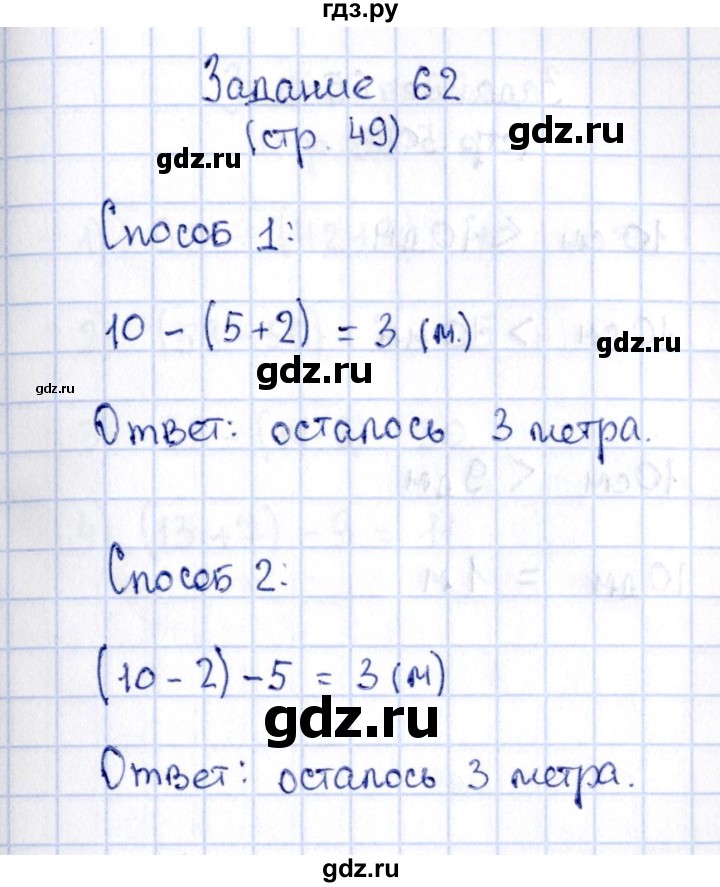 гдз.ру
Задание 62
(стр. 49)
gdz.ru
gdz.ru
Способ 1:
10 - (5+2) = 3 (м.)
gdz.ru
gdz.ru
gdz.ru
Ответ: осталось 3 метра.
Способ 2:
(10-2)-5 = 3 (м)
gdz.ru
Ответ: осталось 3 метра.
gdz.ru